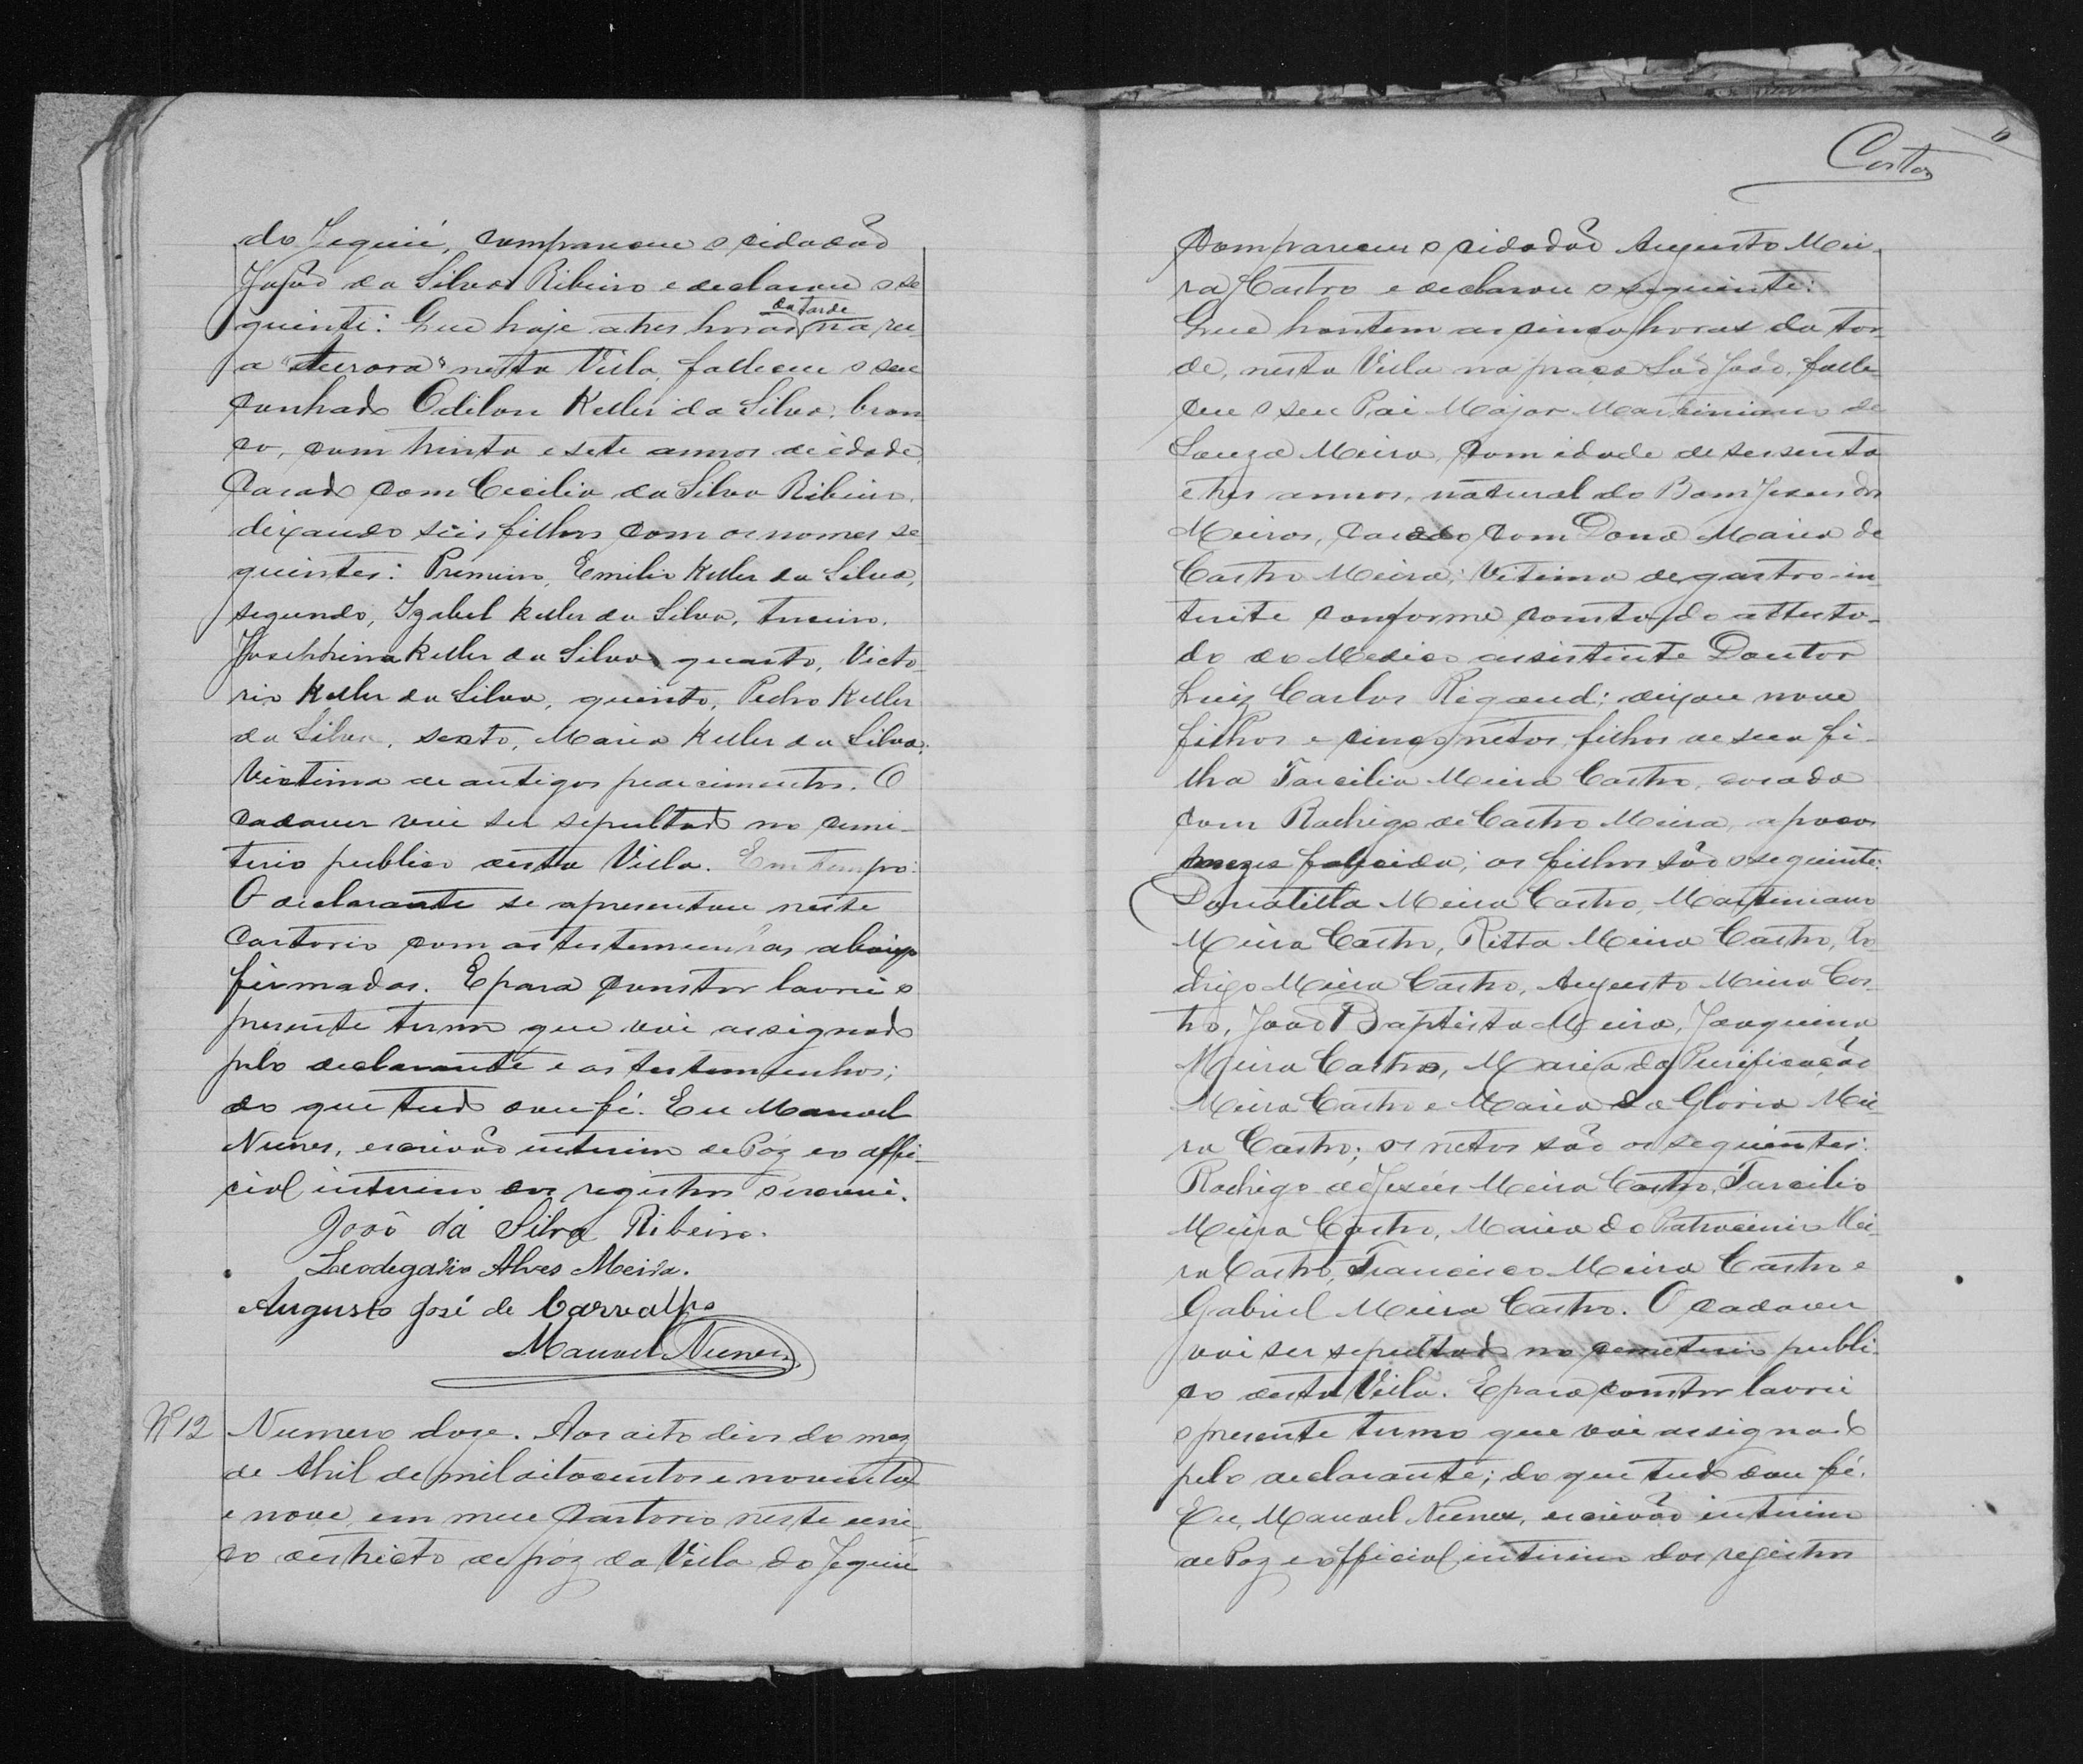 do Jequié, compareceu o cidadão
João da Silva Ribeiro e declarou o se
guinte: Que hoje as tres horas da tarde na ru-
a "Aurora" nesta Villa, falleceu o seu
cunhado Odilon Keller da Silva, bran
co, com trinta e sete annos de idade,
casado com Cecilia da Silva Ribeiro,
deixando seis filhos com os nomes se
guintes: Primeiro, Emilio Keller da Silva,
segundo, Izabel Keller da Silva, terceiro,
Josephina Keller da Silva, quarto, Victo
rio Keller da Silva, quinto, Pedro Keller
da Silva, sexto, Maria Keller da Silva.
Victima de antigos padecimentos. O
cadaver vai ser sepultado no cemi-
terio publico desta Villa. Em tempo:
O declarante se apresentou neste
Cartorio com as testemunhas abaixo
firmadas. E para constar lavrei o
presente termo que vai assignado
pelo declarante e as testemunhas;
do que tudo dou fé. Eu Manoel
Nunes, escrivão interino de Páz e o offi-
cial interino dos registros o escrevi.
João da Silva Ribeiro.
Leodegario Alves Meira.
Augusto José de Carvalho
Manoel Nunes
Nº 12 Numero doze. Aos oito dias do mez
de Abril de mil oitocentos e noventa
e nove, em meu Cartorio neste uni
co destricto de páz da Villa do Jequié
Costa
compareceu o cidadão Augusto Mei-
ra Castro e declarou o seguinte:
Que hontem as cinco horas da tar-
de, nesta Villa na praça São João, falle-
ceu o seu Pai Major Martiniano de
Souza Meira, com idade de sessenta
e tres annos, natural do Bom Jesus dos
Meiras, casado com Dona Maria de
Castro Meira; Vitima de gastro-in
terite conforme consta do attesta-
do do Medico assistente Doutor
Luiz Carlos Rigaud; deixou nove
filhos e cinco netos, filhos de sua fi-
lha Tarcilia Meira Castro, casada
com Rodrigo de Castro Meira, a poucos
mezes falicida; os filhos são o seguinte:
Donatilla Meira Castro, Martiniano
Meira Castro, Ritta Meira Castro, Ro
drigo Meira Castro, Augusto Meira Cas-
tro, João Baptista Meira, Joaquina
Meira Castro, Maria da Purificação
Meira Castro e Maria da Gloria Mei
ra Castro; os netos são os seguintes:
Rodrigo de Jesus Meira Castro, Tarcilio
Meira Castro, Maria do Patrocinio Mei-
ra Castro, Francisco Meira Castro e
Gabriel Meira Castro. O cadaver
vai ser sepultado no cemiterio publi-
co desta Villa. E para constar lavrei
o presente termo que vai assignado
pelo declarante; do que tudo dou fé.
Eu, Manoel Nunes, escrivão interino
de Paz e official interino dos registros